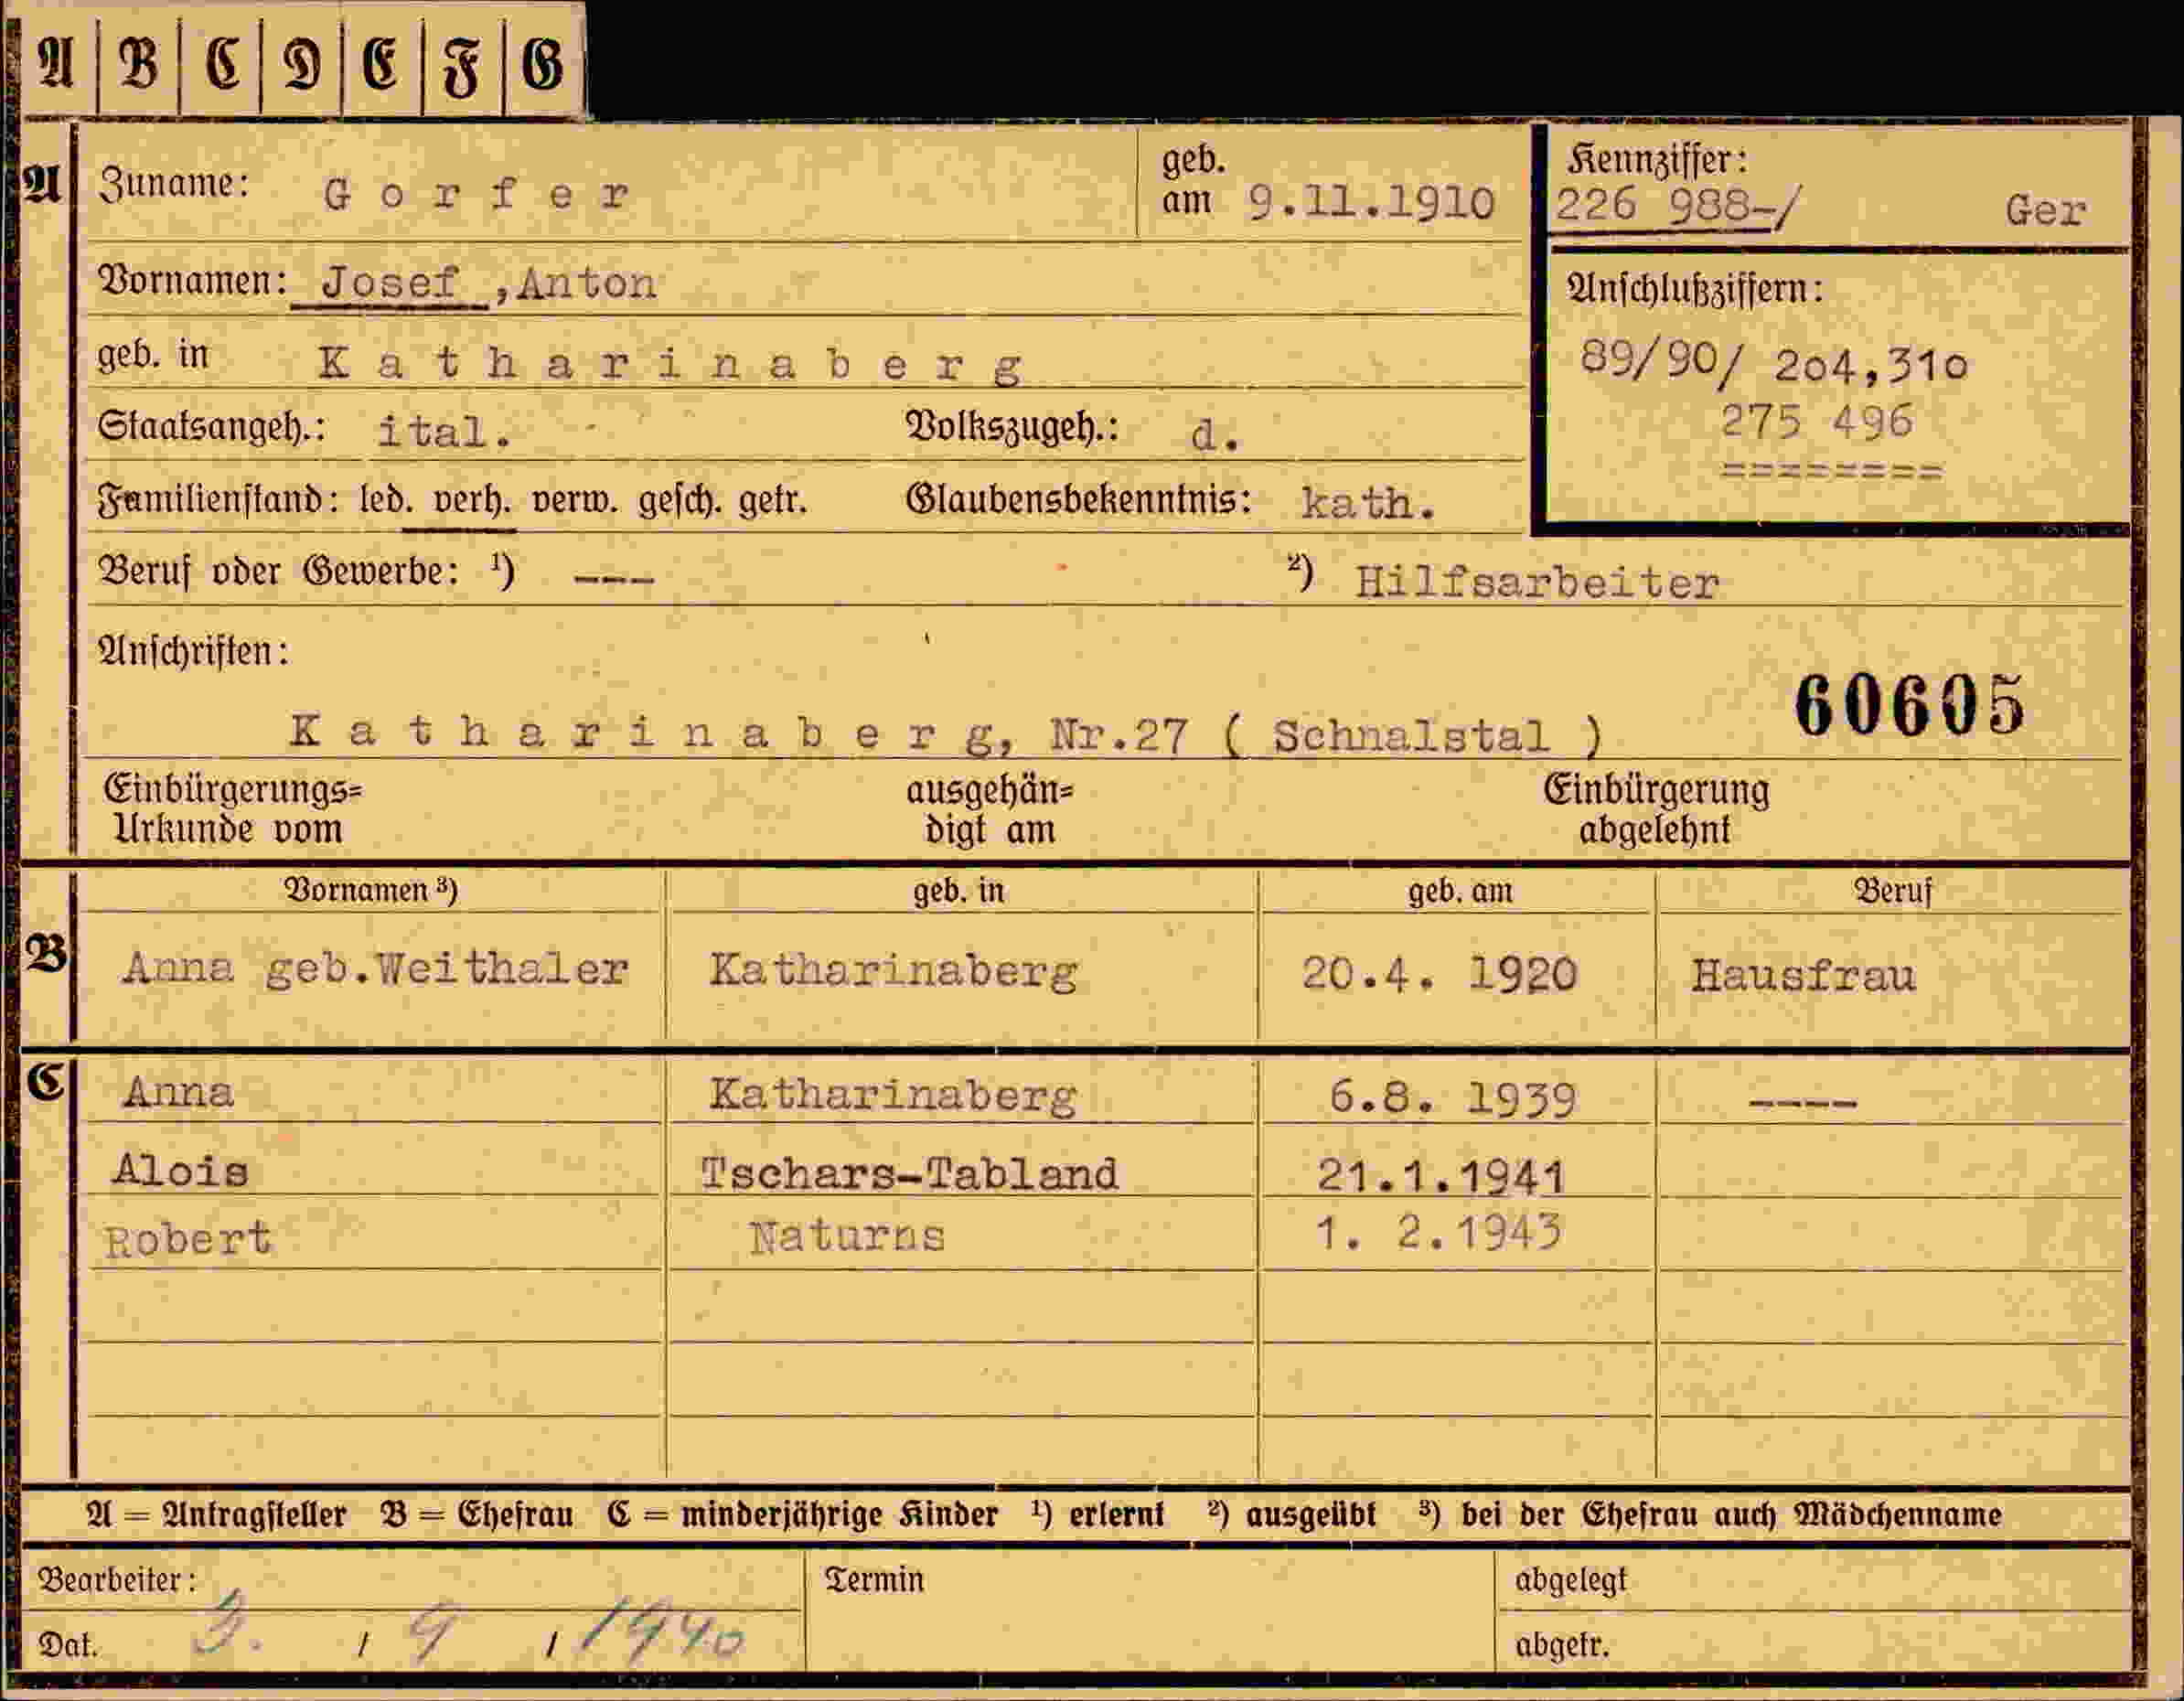 A B C D E F G
A Zuname: Gorfer geb. am 9.11.1910 Kennziffer: 226 988-/ Ger
Vornamen: Josef ,Anton Anschlußziffern:
geb. in Katharinaberg 89/90/ 204,310
Staatsangeh.: ital. Volkszugeh.: d. 275 496
========
Familienstand: led. verh. verw. gesch. getr. Glaubensbekenntnis: kath.
Beruf oder Gewerbe: ¹) --- ²) Hilfsarbeiter
Anschriften:
60605
Katharinaberg, Nr.27 ( Schnalstal )
Einbürgerungs= ausgehän= Einbürgerung
Urkunde vom digt am abgelehnt
Vornamen ³) geb. in geb. am Beruf
B Anna geb.Weithaler Katharinaberg 20.4. 1920 Hausfrau
C Anna Katharinaberg 6.8. 1939 ----
Alois Tschars-Tabland 21.1.1941
Robert Naturns 1. 2.1943
A = Antragsteller B = Ehefrau C = minderjährige Kinder ¹) erlernt ²) ausgeübt ³) bei der Ehefrau auch Mädchenname
Bearbeiter: Termin abgelegt
Dat. 3. / 9 / 1940 abgetr.